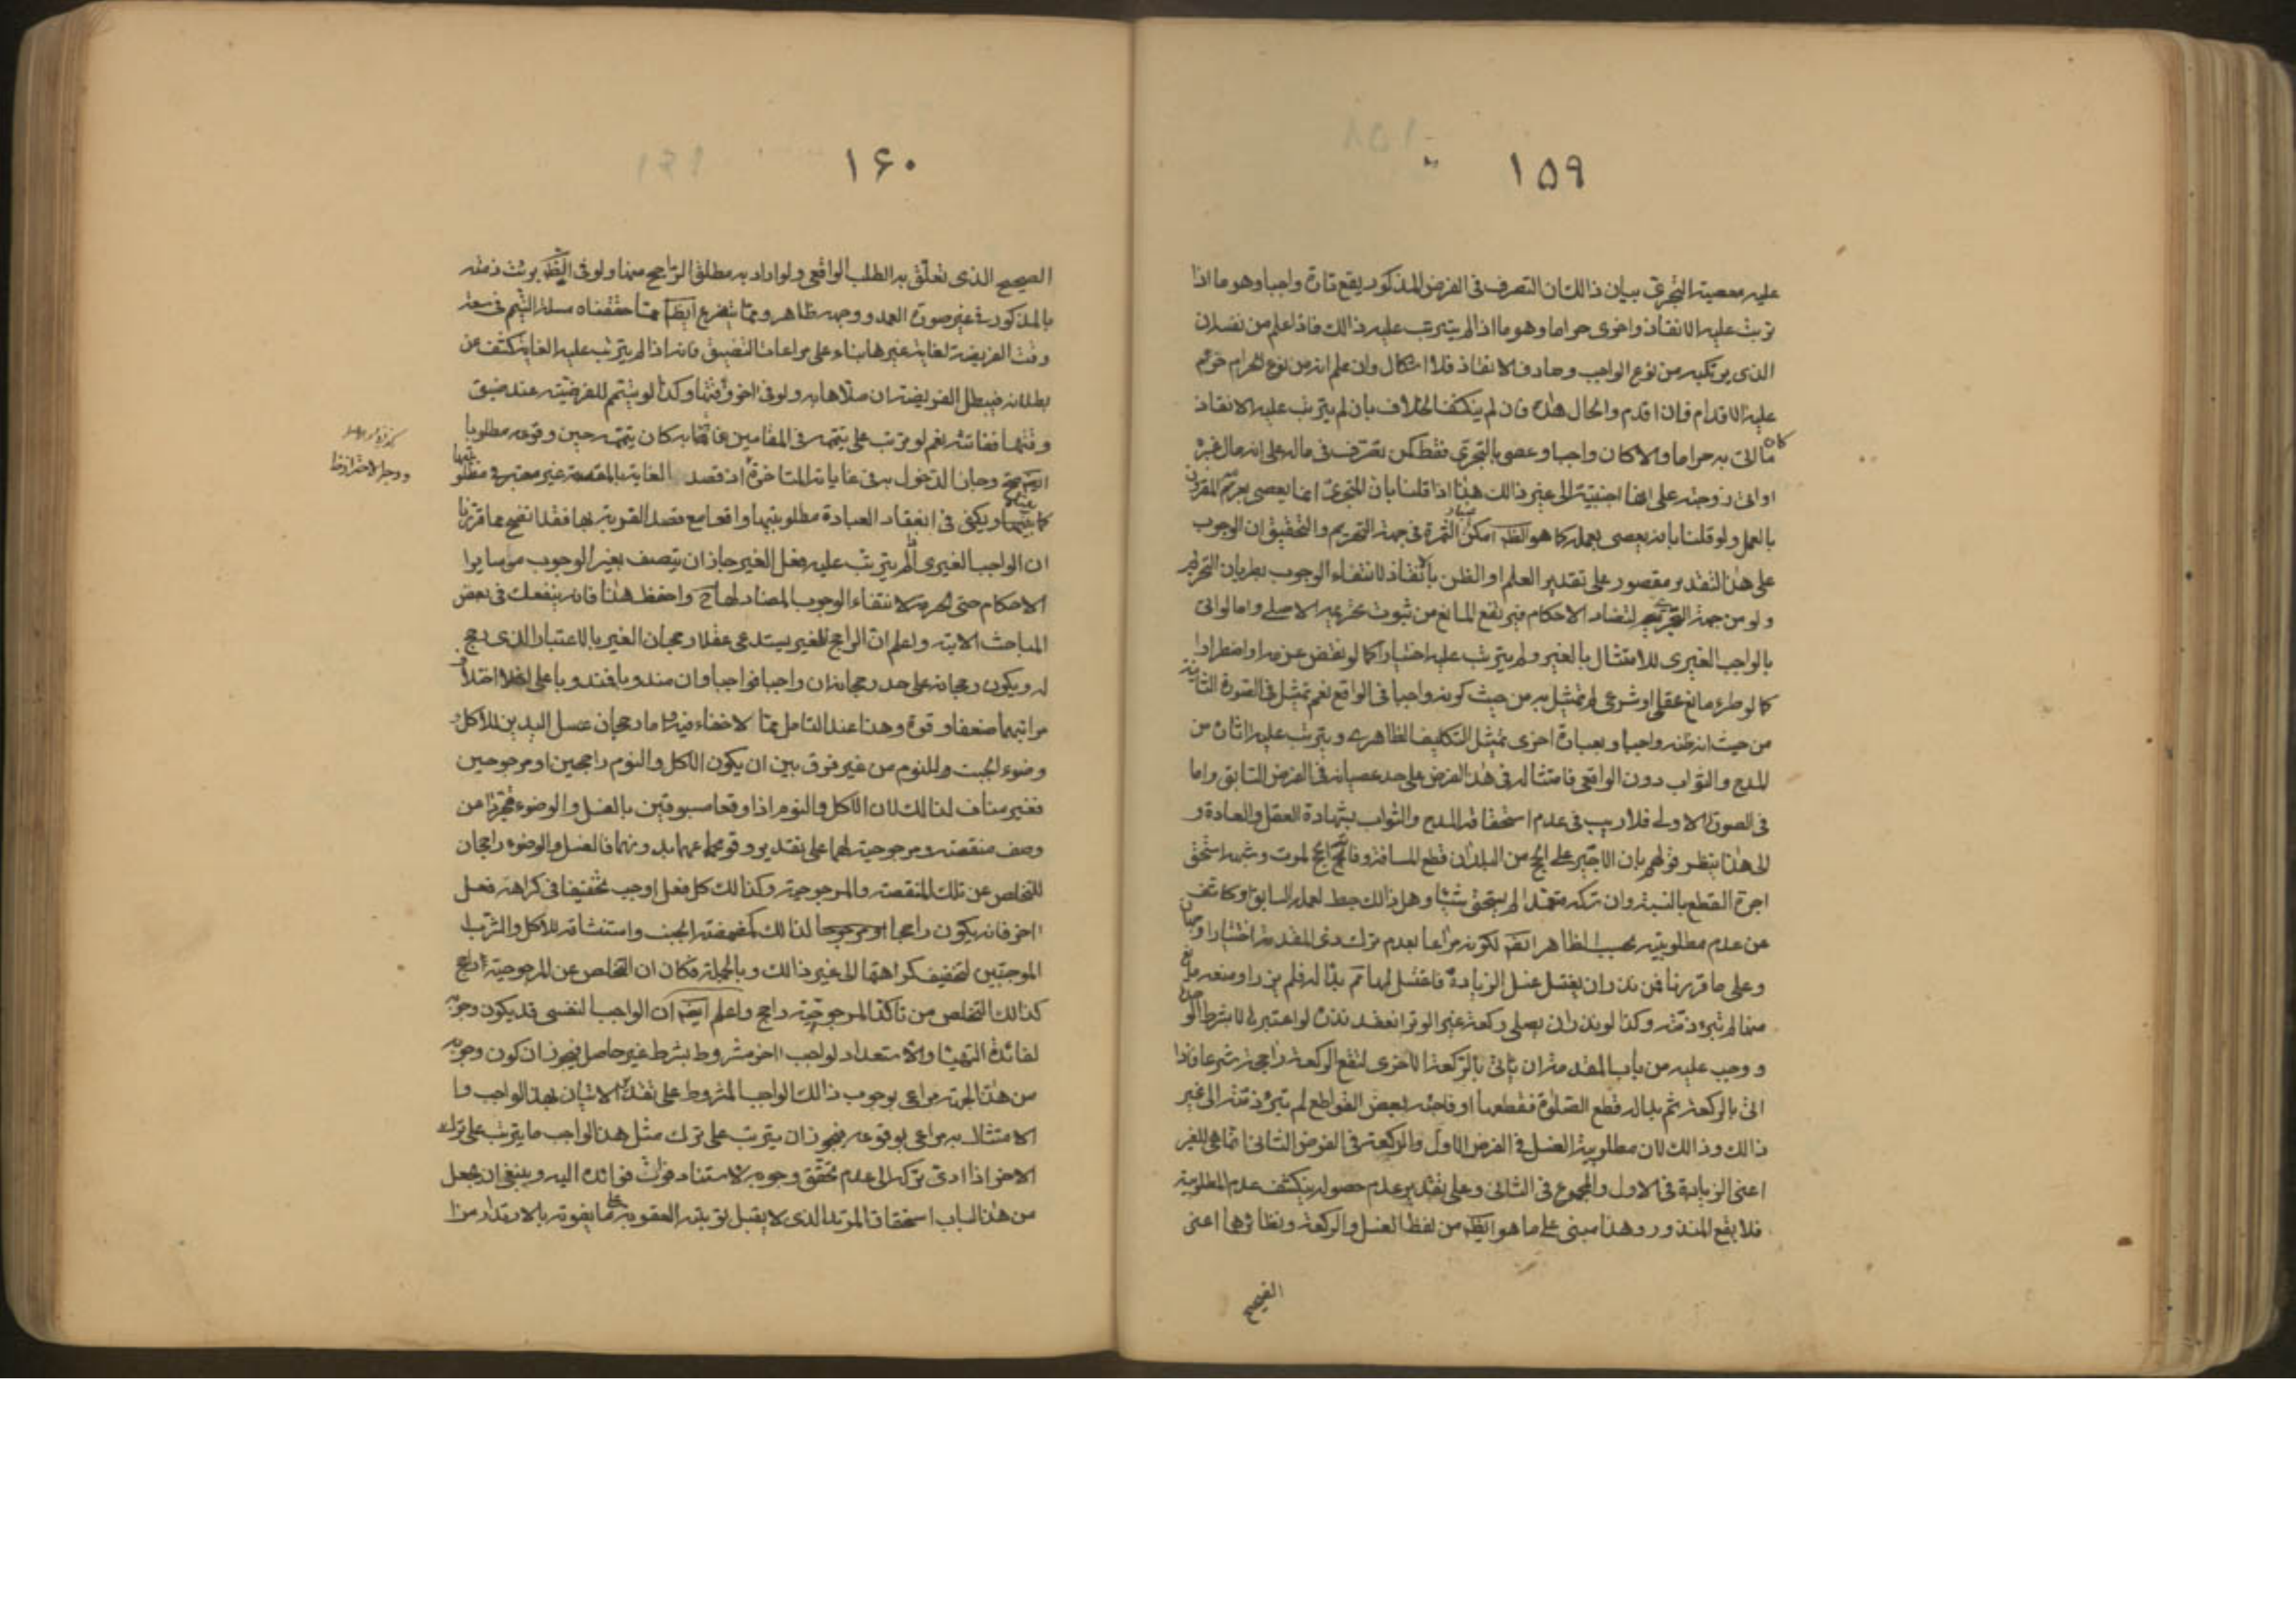 ١٥٩
عليه معصية التجري بيان ذالك ان التصرف فى الفرض المذكور يقع تارة واجبا وهو ما اذا
ترتب عليه الانقاذ واخرى حراما وهو ما اذا لم يترتب عليه ذالك فاذا علم من نفسه ان
الذى يرتكبه من نوع الواجب وصادف الانقاذ فلا اشكال وان علم انه من نوع الحرام حرم
عليه الاقدام فان اقدم والحال هذه فان لم ينكشف الخلاف بان لم يترتب عليه الانقاذ
كان ما اتى به حراما والا كان واجبا وعصى بالتجرى فقط كمن تصرف فى ماله على انه مال غيره
او اتى زوجته على انها اجنبية الى غير ذالك هذا اذا قلنا بان المتجرى انما يعصى بعزمه المقرون
بالعمل ولو قلنا بانه يعصى بعمله كما هو الظ امكن الثمرة فى جهة التحريم والتحقيق ان الوجوب
على هذا التقدير مقصور على تقدير العلم او الظن بالانقاذ لانتفاء الوجوب بطريان التحريم
ولو من جهة التجرى لتضاد الاحكام فيرتفع المانع من ثبوت تحريمه الاصلى واما لو اتى
بالواجب الغيرى للامتثال بالغير ولم يترتب عليه اختيارا كما لو نقض عزمه او اضطرارا
كما لو طرء مانع عقلى او شرعى لم يمتثل به من حيث كونه واجبا فى الواقع نعم يمتثل فى الصورة الثانية
من حيث انه ظنه واجبا وبعبارة اخرى يمتثل التكليف الظاهرى ويترتب عليه اثاره من
المدح والثواب دون الواقعى فامتثاله فى هذا الفرض على حد عصيانه فى الفرض السابق واما
فى الصورة الاولى فلا ريب فى عدم استحقاقه المدح والثواب بشهادة العقل والعادة و
الى هذا ينظر قولهم بان الاجير على الحج من البلد ان قطع المسافة وفاته الحج لموت وشبهه استحق
اجرة القطع بالنسبة وان تركه متعمدا لم يستحق شيئا وهل ذالك حبط لعمله السابق او كاشف
عن عدم مطلوبيته بحسب الظاهر ايضا لكونه مراعا بعدم ترك ذى المقدمة اختيارا وجهان
وعلى ما قررنا فمن نذر ان يغتسل غسل الزيارة فاغتسل لها ثم بدا له فلم يزر او منعه مانع
منها لم تبرء ذمته وكذا لو نذر ان يصلى ركعة غير الوتر انعقد نذره لو اعتبر لا بشرط الوحدة
ووجب عليه من باب المقدمة ان ياتى بالركعة الاخرى لتقع الركعة راجحة شرعا فاذا
اتى بالركعة ثم بدا له قطع الصلوة فقطعها او فاجئه بعض القواطع لم تبرء ذمته الى غير
ذالك وذالك لان مطلوبية الغسل فى الفرض الاول والركعة فى الفرض الثانى انما هى للغير
اعنى الزيارة فى الاول والمجموع فى الثانى وعلى تقدير عدم حصوله ينكشف عدم المطلوبية
فلا يقع المنذور وهذا مبنى على ما هو الظ من لفظ الغسل والركعة ونظائرها اعنى
الصحيح
١۶٠
الصحيح الذى تعلق به الطلب الواقعى ولو اراد به مطلق الراجح منها ولو فى الظ برئت ذمته
بالمذكور فى غير صورة العمد ووجهه ظاهر ومما يتفرع ايضا مما حققناه مسئلة التيمم فى سعة
وقت الفريضة لغاية غيرها بناء على مراعات التضيق فانه اذا لم يترتب عليه الغاية كشف عن
بطلانه فيبطل الفريضة ان صلاها به ولو فى اخر وقتها وكذا لو يتيمم للفريضة عند ضيق
وقتها ففاتته نعم لو ترتب على تيممه فى المقامين غايتها به كان تيممه حين وقوعه مطلوبا
وجاز الدخول به فى غايات المتاخرة اذ قصد الغاية بالمقدمة غير معتبر فى مطلوبيتها
كما بيناه ويكفى فى انعقاد العبادة مطلوبيتها واقعا مع قصد القربة بها فقد اتضح مما قررنا
ان الواجب الغيرى اذا لم يترتب عليه فعل الغير جاز ان يتصف بغير الوجوب من ساير ا
الاحكام حتى الحرمة لانتفاء الوجوب المضاد لها ح واحفظ هذا فانه ينفعك فى بعض
المباحث الاتية واعلم ان الراجح للغير يستدعى عقلا رجحان الغير بالاعتبار الذى رجح
له ويكون رجحانه على حد رجحانه ان واجبا فواجبا وان مندوبا فمندوبا على اختلاف
مراتبهما ضعفا وقوة وهذا عند التامل مما لا خفاء فيه واما رجحان غسل اليدين للاكل و
وضوء الجنب وللنوم من غير فرق بين ان يكون الاكل والنوم راجحين او مرجوحين
فغير مناف لذالك لان الاكل والنوم اذا وقعا مسبوقين بالغسل والوضوء تجردا من
وصف منقصة ومرجوحية لهما على تقدير وقوعهما بدونهما فالغسل والوضوء راجحان
للتخلص عن تلك المنقصة والمرجوحية وكذالك كل فعل اوجب تخفيفا فى كراهة فعل
اخر فانه يكون راجحا لذالك كمضمضة الجنب واستنشاقه للاكل والشرب
الموجبين لتخفيف كراهتهما الى غير ذالك وبالجملة فكما ان التخلص عن المرجوحية راجح
كذالك التخلص من تاكد المرجوحية راجح واعلم ايضا ان الواجب النفسى قد يكون وجوبه
لفائدة التهيا والاستعداد لواجب اخر مشروط بشرط غير حاصل فيجوز ان يكون وجوبه
من هذه الجهة مراعى بوجوب ذالك الواجب المشروط على تقدير الاتيان بهذا الواجب وا
الامتثال به مراعى بوقوعه فيجوز ان يترتب على ترك مثل هذا الواجب ما يترتب على ترك
الاخر اذا ادى تركه الى عدم تحقق وجوبه لاستناد فوات فوائده اليه وينبغى ان يجعل
من هذا الباب استحقاق المرتد الذى لا يقبل توبته العقوبة على ما يفوته بالارتداد من ا